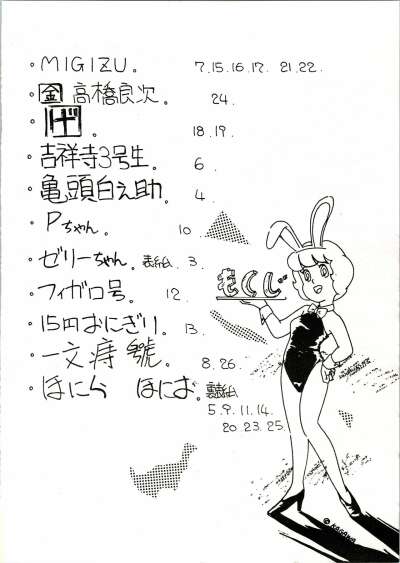 ・MIGIZU。 7,15,16,17. 21,22.
・金 高橋良次。 24.
・げ。 18,19.
・吉祥寺3号生。 6.
・亀頭白之助。 4.
・Pちゃん。 10.
・ゼリーちゃん。表紙 3.
・フィガロ号。 12.
・15円おにぎり。 13.
・一文 號。 8,26.
・ほにゃらほにお。裏表紙
5.9.11.14.
20.23.25.
もくじ
© KAGAMI